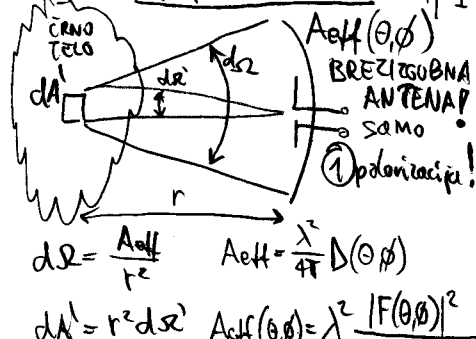 ČRNO
TELO
dA'
dΩ'
dΩ
Aeff(Θ,ϕ)
BREZIZGUBNA
ANTENA!
SAMO
① polarizacija!
r
dΩ = Aeff / r²
Aeff = λ²/4π D(Θ,ϕ)
dA' = r² dΩ'
Aeff(Θ,ϕ) = λ² |F(Θ,ϕ)|²